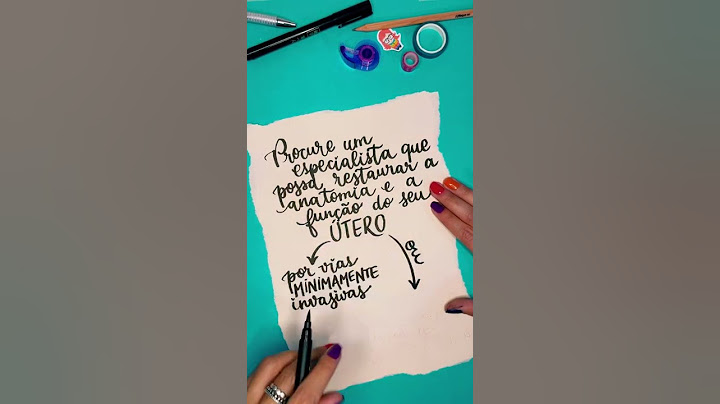 Procure um
especialista que
possa restaurar a
anatomia e a
função do seu
ÚTERO
por vias
MINIMAMENTE
invasivas